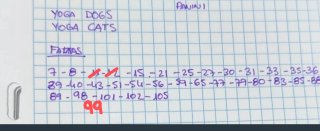 PANINI
YOGA DOGS
YOGA CATS
FALTAS
7 - 8 - - 15 - 21 - 25 - 27 - 30 - 31 - 33 - 35 - 36
39 - 40 - 43 - 51 - 54 - 56 - 59 - 65 - 77 - 79 - 80 - 83 - 85 - 88
89 - 98 - 101 - 102 - 105
99